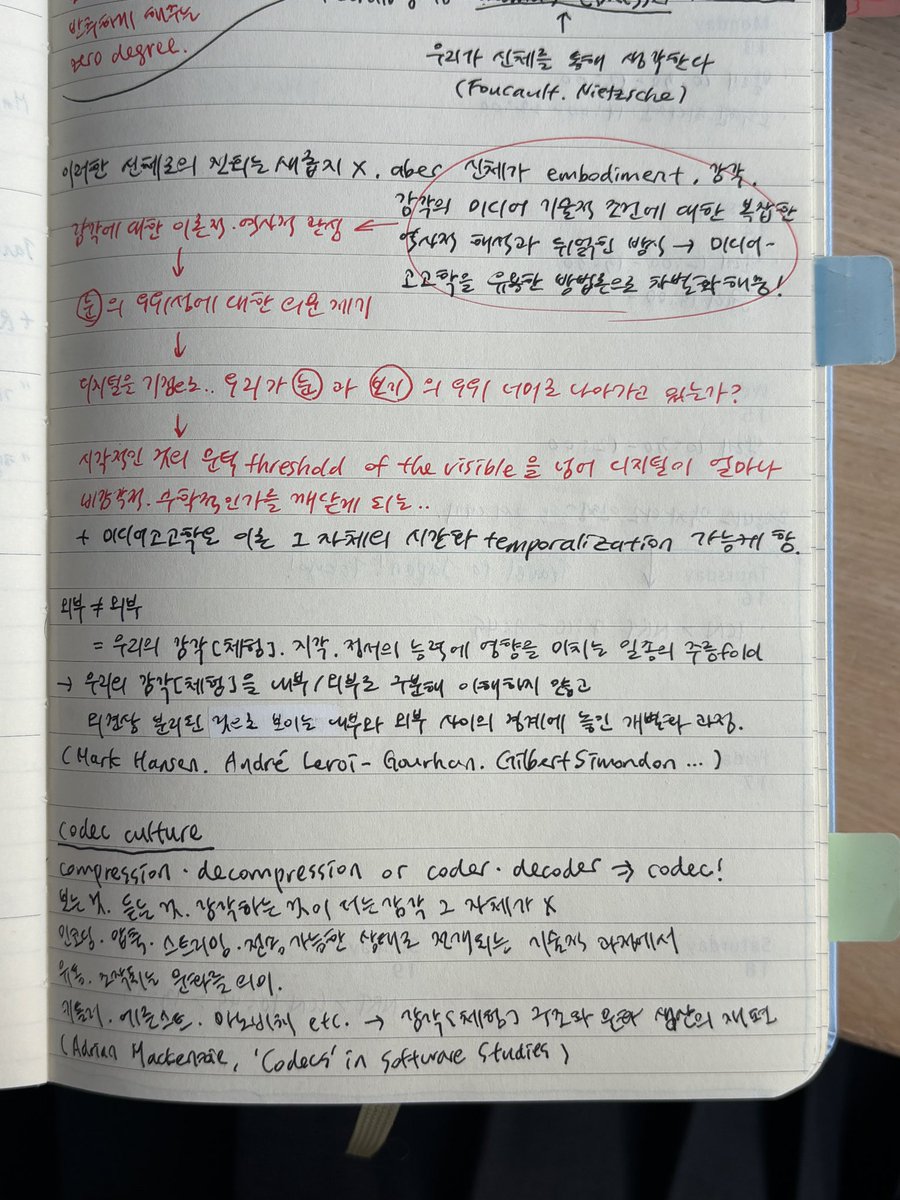 반복하게 해주는
zero degree.
↑
우리가 신체를 통해 생각한다
(Foucault. Nietzsche)
이러한 신체로의 전회는 새롭지 X. aber 신체가 embodiment. 감각.
감각의 미디어 기술적 조건에 대한 복잡한
감각에 대한 이론적·역사적 관심 ← 역사적 해석과 뒤얽힌 방식 → 미디어-
↓ 고고학을 유용한 방법론으로 차별화해줌!
눈의 우위성에 대한 의문 제기
↓
디지털을 기점으로.. 우리가 눈과 보기의 우위 너머로 나아가고 있는가?
↓
시각적인 것의 문턱 threshold of the visible을 넘어 디지털이 얼마나
비감각적. 수학적인가를 깨닫게 되는..
+ 미디어고고학은 이론 그 자체의 시간화 temporalization 가능케 함.
외부 ≠ 외부
= 우리의 감각[체험]. 지각. 정서의 능력에 영향을 미치는 일종의 주름fold
→ 우리의 감각[체험]을 내부/외부로 구분해 이해하지 않고
외견상 분리된 것으로 보이는 내부와 외부 사이의 경계에 놓인 개별화 과정.
(Mark Hansen. André Leroi-Gourhan. Gilbert Simondon ...)
codec culture
compression · decompression or coder · decoder ⇒ codec!
보는 것. 듣는 것. 감각하는 것이 더는 감각 그 자체가 X
인코딩·압축·스트리밍·전송 가능한 상태로 전개되는 기술적 과정에서
유통. 조작되는 문화를 의미.
키틀러. 에른스트. 마노비치 etc. → 감각[체험] 구조와 문화 생산의 재편
(Adrian Mackenzie, 'Codecs' in Software Studies)